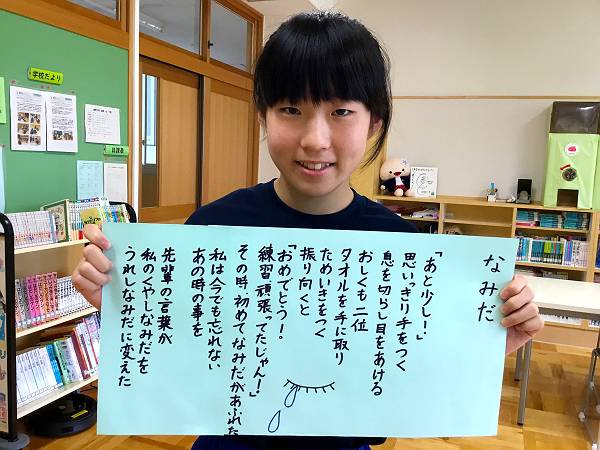 なみだ
「あと少し!」
思いっきり手をつく
息を切らし目をあける
おしくも二位
タオルを手に取り
ためいきをつく
振り向くと
「おめでとう!
練習頑張ってたじゃん!」
その時、初めてなみだがあふれた
私は今でも忘れない
あの時の事を
先輩の言葉が
私のくやしなみだを
うれしなみだに変えた
学校だより